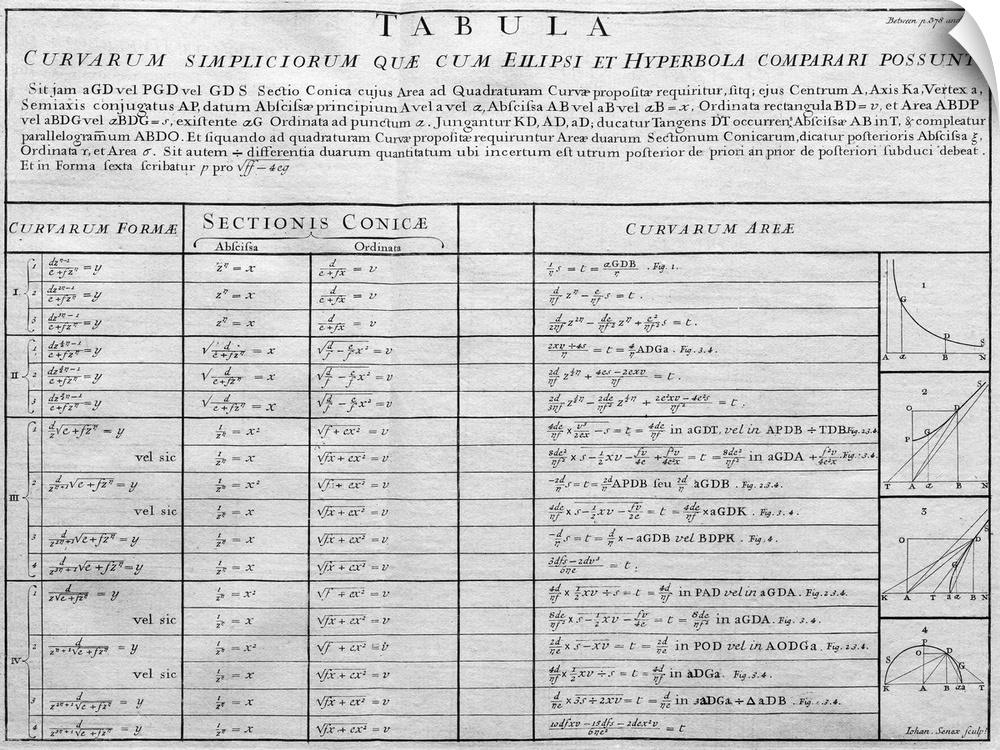 TABULA
Between p.378 and
CURVARUM SIMPLICIORUM QUÆ CUM ELLIPSI ET HYPERBOLA COMPARARI POSSUNT
Sit jam aGD vel PGD vel GDS Sectio Conica cujus Area ad Quadraturam Curvæ propositæ requiritur, sitq; ejus Centrum A, Axis Ka, Vertex a,
Semiaxis conjugatus AP, datum Abscissæ principium A vel a vel α, Abscissa AB vel aB vel αB = x, Ordinata rectangula BD = v, et Area ABDP
vel aBDG vel αBDG = s, existente αG Ordinata ad punctum α. Jungantur KD, AD, aD; ducatur Tangens DT occurrens Abscissæ AB in T, & compleatur
parallelogram̄um ABDO. Et siquando ad quadraturam Curvæ propositæ requiruntur Areæ duarum Sectionum Conicarum, dicatur posterioris Abscissa ξ,
Ordinata ϒ, et Area σ. Sit autem ÷ differentia duarum quantitatum ubi incertum est utrum posterior de priori an prior de posteriori subduci debeat.
Et in Forma sexta scribatur p pro √ff − 4eg
CURVARUM FORMÆ SECTIONIS CONICÆ CURVARUM AREÆ
Abscissa Ordinata
I 1 dz^η−1 / e+fz^η = y z^η = x d / e+fx = v 1/η s = t = αGDB/η . Fig. 1.
2 dz^2η−1 / e+fz^η = y z^η = x d / e+fx = v d/ηf z^η − e/ηf s = t .
3 dz^3η−1 / e+fz^η = y z^η = x d / e+fx = v d/2ηf z^2η − de/ηf² z^η + e²/ηf² s = t .
II 1 dz^½η−1 / e+fz^η = y √d / e+fz^η = x √d/f − e/f x² = v 2xv ÷ 4s / η = t = 4/η ADGa . Fig. 3. 4.
2 = y √d / e+fz^η = x √d/f − e/f x² = v 2d/ηf z^½η + 4es − 2exv / ηf = t .
3 = y √d / e+fz^η = x √d/f − e/f x² = v + 2e²xv − 4e²s / ηf² = t .
III 1 d/z √e + fz^η = y 1/z^η = x² √f + ex² = v 4de/ηf × v³/2ex − s = t = 4de/ηf in aGDT, vel in APDB ÷ TDB. Fig. 2.3.4.
vel sic 1/z^η = x √fx + ex² = v 8de²/ηf² × s − ½ xv − fv/4e + f²v/4e²x = t = 8de²/ηf² in aGDA + f²v/4e²x . Fig. 3. 4.
2 d/z^η+1 √e + fz^η = y 1/z^η = x² √f + ex² = v −2d/η s = t = 2d/η APDB seu 2d/η aGDB . Fig. 2.3.4.
vel sic 1/z^η = x √fx + ex² = v 4de/ηf × s − ½ xv − fv/2e = t = 4de/ηf × aGDK . Fig. 3. 4.
3 d/z^2η+1 √e + fz^η = y 1/z^η = x √fx + ex² = v −d/η s = t = d/η × −aGDB vel BDPK . Fig. 4.
4 d/z^3η+1 √e + fz^η = y 1/z^η = x √fx + ex² = v 3dfs − 2dv³ / 6ηe = t .
IV 1 d / z√e + fz^η = y 1/z^η = x² √f + ex² = v 4d/ηf × ½ xv ÷ s = t = 4d/ηf in PAD vel in aGDA . Fig. 2.3.4.
vel sic 1/z^η = x √fx + ex² = v 8de/ηf² × s − ½ xv − fv/4e = t = 8de/ηf² in aGDA . Fig. 3. 4.
2 d / z^η+1 √e + fz^η = y 1/z^η = x² √f + ex² = v 2d/ηe × s − xv = t = 2d/ηe in POD vel in AODGa . Fig. 2.3.4.
vel sic 1/z^η = x √fx + ex² = v 4d/ηe × ½ xv ÷ s = t = 4d/ηe in aDGa . Fig. 3. 4.
3 d / z^2η+1 √e + fz^η = y 1/z^η = x √fx + ex² = v d/ηe × 3s ÷ 2xv = t = d/ηe in 3aDGa ÷ ΔaDB .
4 d / z^3η+1 √e + fz^η = y 1/z^η = x √fx + ex² = v 10dfxv − 15dfs − 2dex²v / 6ηe² = t
1
G D S
A α B N
2
O D S
P G
T A α B N
3
O D S
G
K A T a α B N
4
P
S O D G
K A B a α T
Iohan. Senex sculpt.